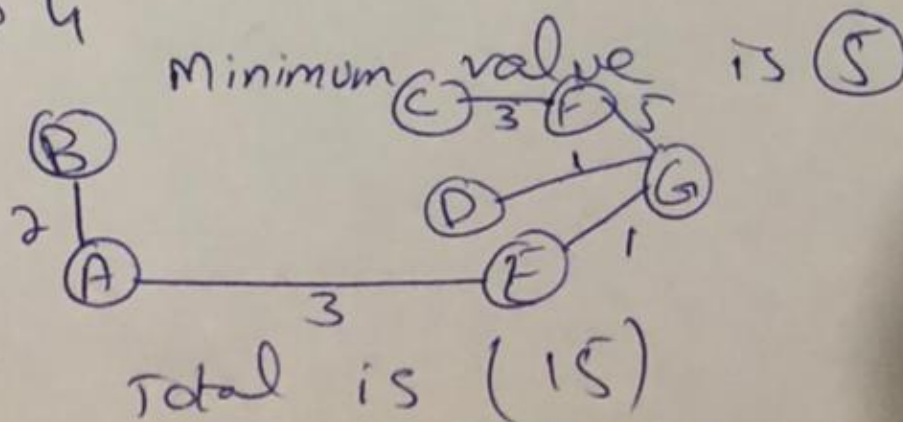 4
Minimum value is 5
C 3 F 5
B
1
D G
2 1
A E
3
Total is (15)